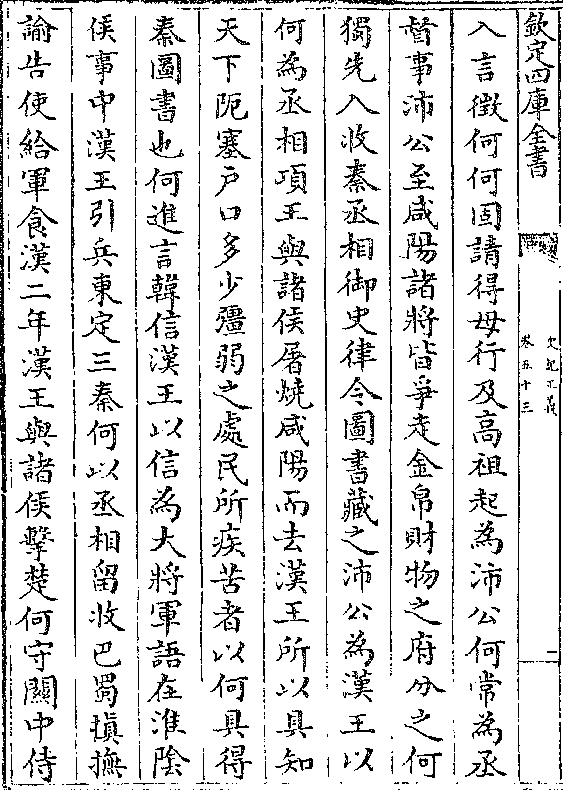 欽定四庫全書
史記正義
卷五十三
二
入言徵何何固請得毋行及高祖起為沛公何常為丞
督事沛公至咸陽諸將皆爭走金帛財物之府分之何
獨先入收秦丞相御史律令圖書藏之沛公為漢王以
何為丞相項王與諸侯屠燒咸陽而去漢王所以具知
天下阨塞户口多少彊弱之處民所疾苦者以何具得
秦圖書也何進言韓信漢王以信為大將軍語在淮陰
侯事中漢王引兵東定三秦何以丞相留收巴蜀塡撫
諭告使給軍食漢二年漢王與諸侯擊楚何守關中侍